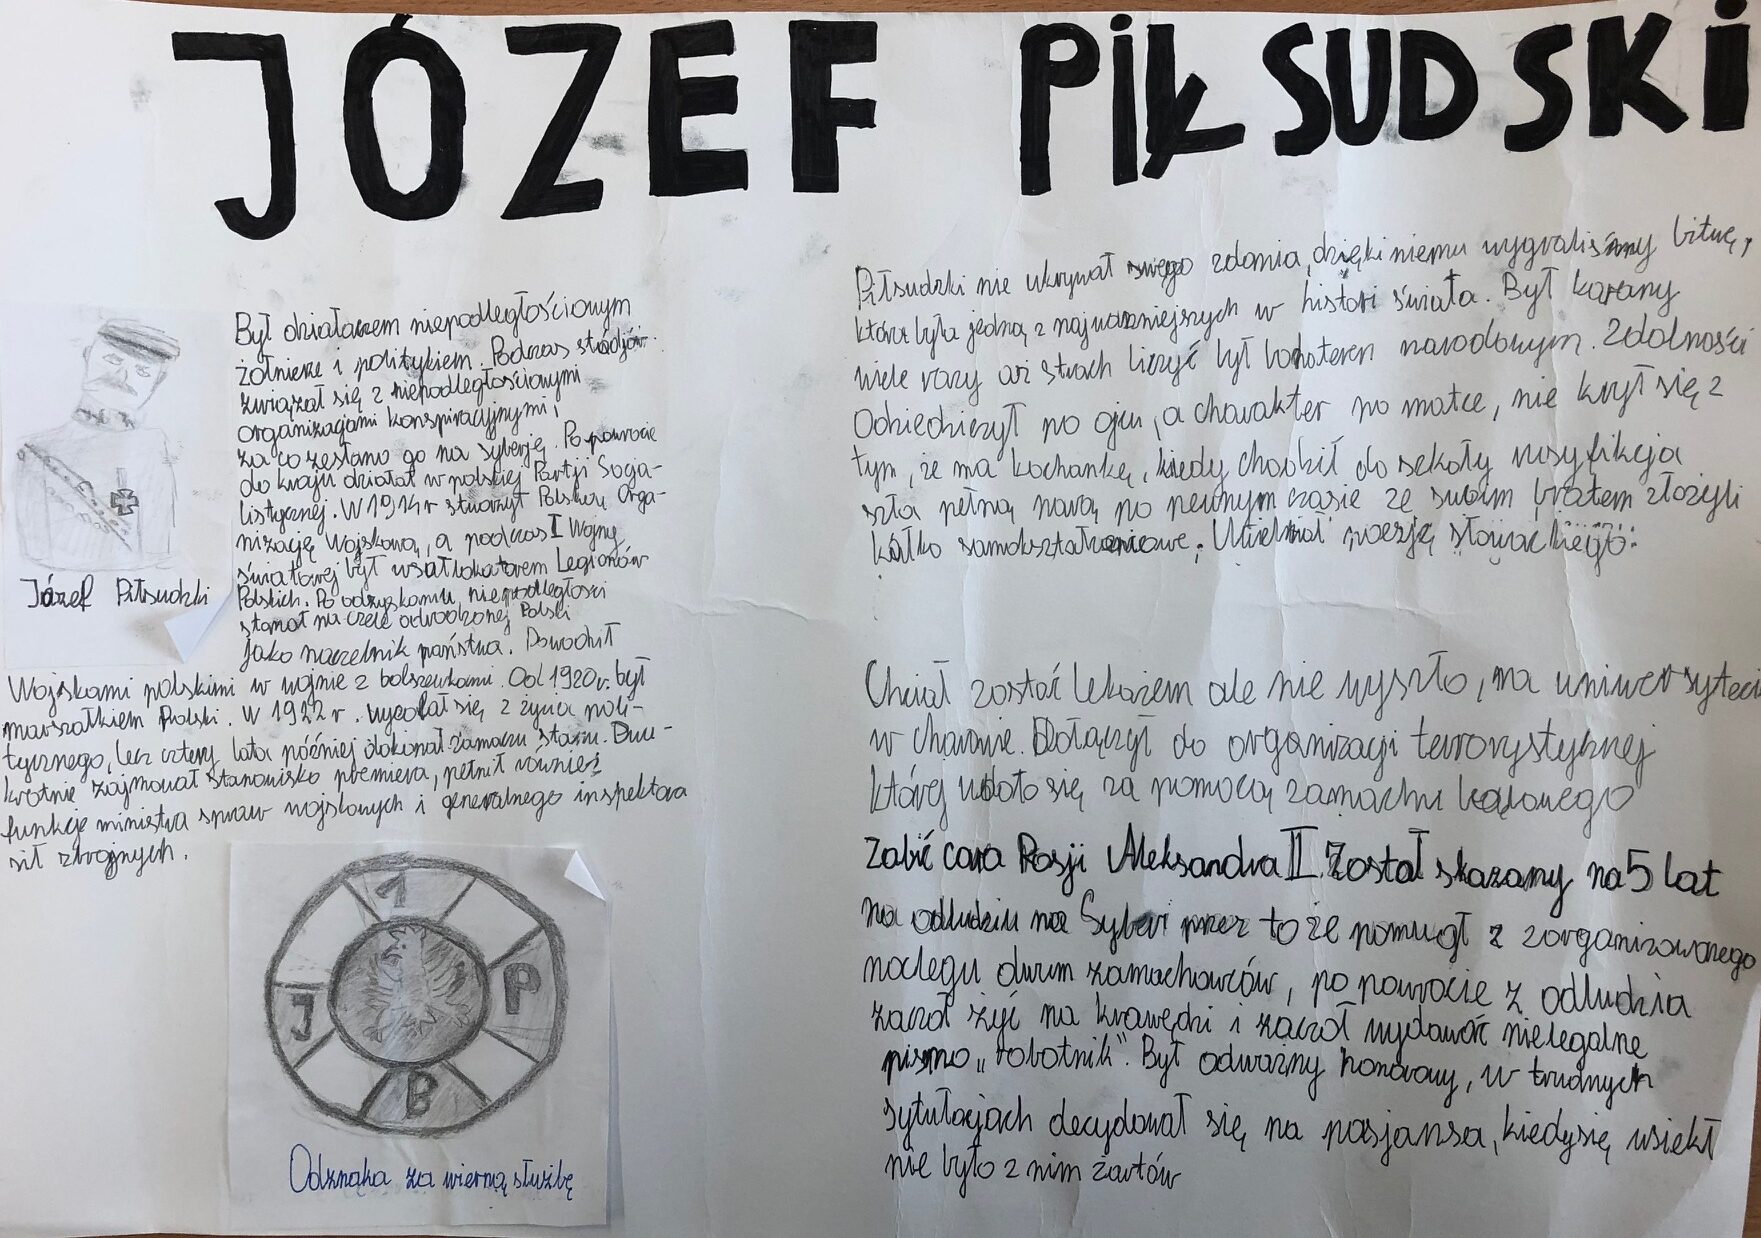 JÓZEF PIŁSUDSKI
Był działaczem niepodległościowym
żołnierze i politykiem. Podczas studjów
związał się z niepodległościowymi
organizacjami konspiracyjnymi,
za co zesłano go na syberję. Po powrocie
do kraju działał w polskiej Partji Socja-
listycznej. W 1914r stworzył Polską Orga-
nizację Wojskową, a podczas I Wojny
światowej był Legionów
Polskich. Po odzyskaniu niepodległości
stanął na czele odrodzonej Polski
jako naczelnik państwa. Dowodził
Wojskami polskimi w wojnie z bolszewikami. Od 1920r. był
marszałkiem Polski. W 1922 r. wycofał się z życia poli-
tycznego, lecz cztery lata później dokonał zamachu stanu. Dwu-
krotnie zajmował stanowisko premiera, pełnił również
funkcje ministra spraw wojskowych i generalnego inspektora
sił zbrojnych.
Józef Piłsudzki
1
J P
B
Odznaka za wierną służbę
Piłsudzki nie ukrywał swego zdania, dzięki niemu wygraliśmy bitwę,
która była jedną z najważniejszych w histori świata. Był karany
wiele razy aż strach liczyć był bohaterem narodowym. Zdolności
Odziedziczył po ojcu, a charakter po matce, nie krył się z
tym, że ma kochankę, kiedy chodził do szkoły rusyfikcja
szła pełną parą po pewnym czasie ze swoim bratem złożyli
kółko samokształceniowe, Uwielbiał poezję słowackiego.
Chciał zostać lekarzem ale nie wyszło, na uniwersytecie
w Charkowie. Dołączył do organizacji terorystycznej
której udało się za pomocą zamachu bądowego
Zabić cara Rosji Aleksandra II. Został skazany na 5 lat
na odludziu na Syberi przez to że pomugł z zorganizowanego
noclegu dwum zamachowców, po powrocie z odludzia
zaczoł żyć na krawędzi i zaczoł wydawać nielegalne
pismo „robotnik". Był odważny honorowy, w trudnych
sytułacjach decydował się na pasjansa, kiedysię wściekł
nie było z nim żartów